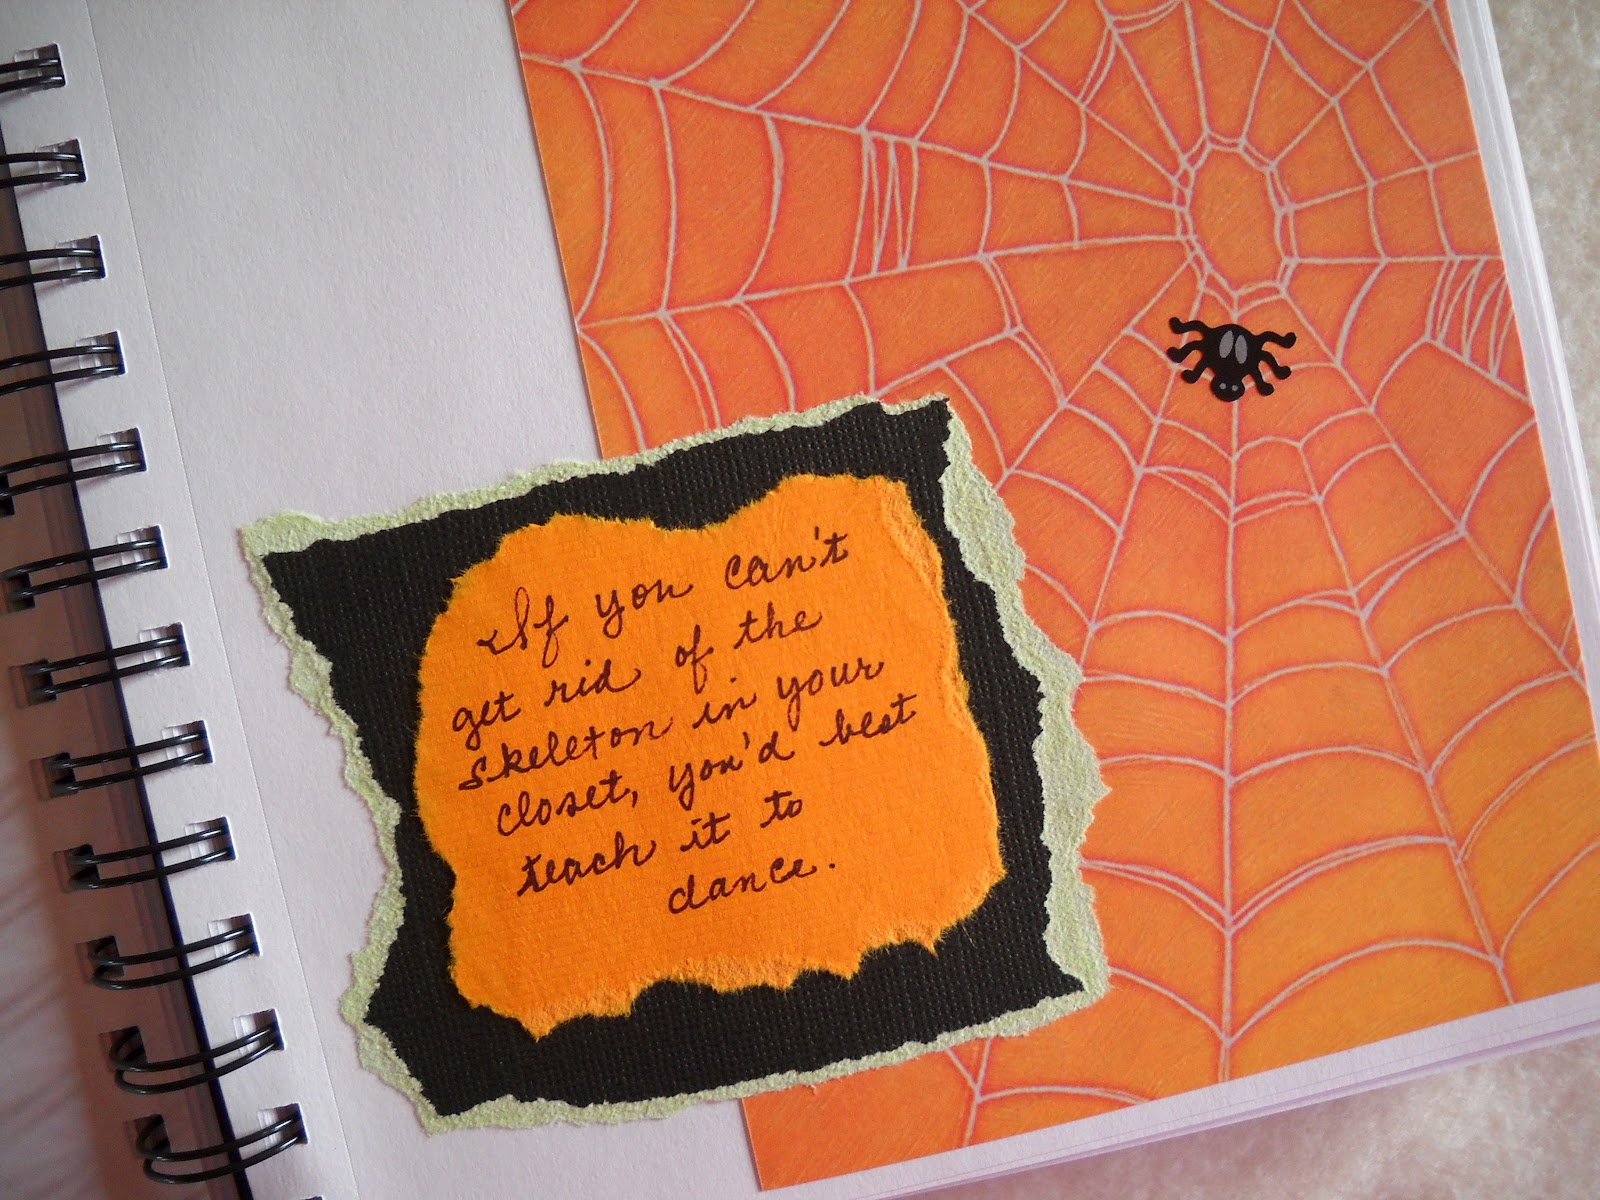 If you can't
get rid of the
skeleton in your
closet, you'd best
teach it to
dance.